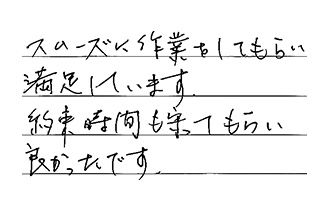 スムーズに作業をしてもらい
満足しています.
約束時間も守ってもらい
良かったです.